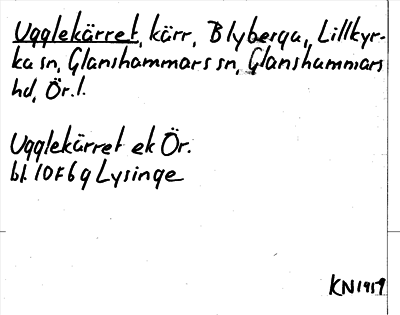 Ugglekärret, kärr, Blyberga, Lillkyr-
ka sn, Glanshammars sn, Glanshammars
hd, Ör.l.
Ugglekärret ek Ör.
bl. 10F6g Lysinge
KN1959